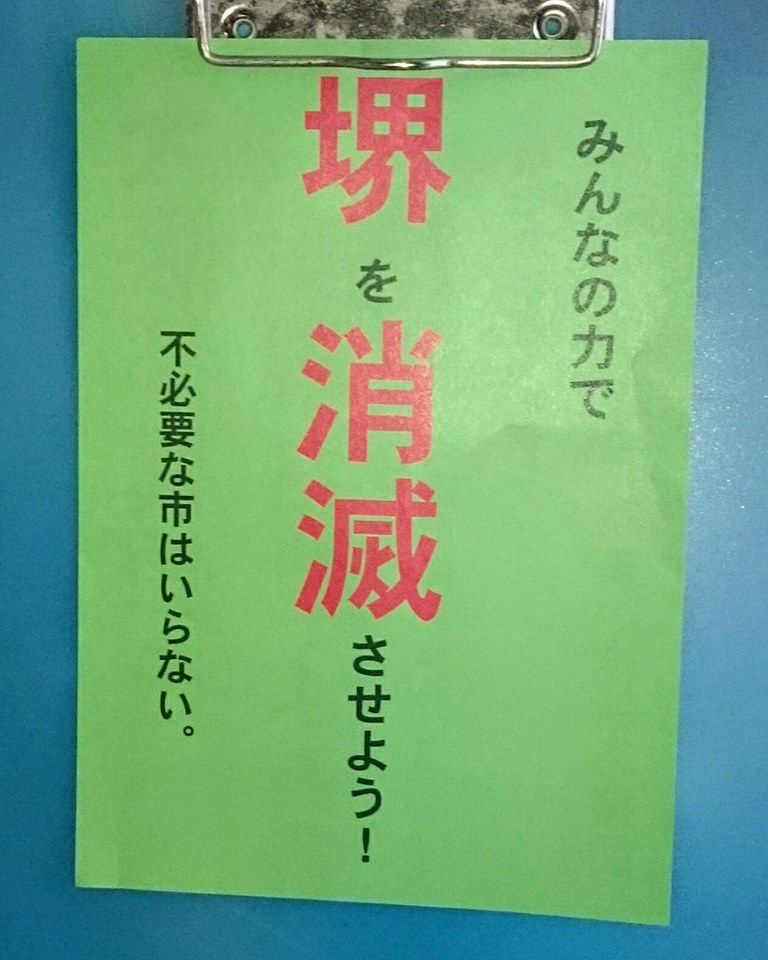 みんなの力で
堺を消滅させよう！
不必要な市はいらない。